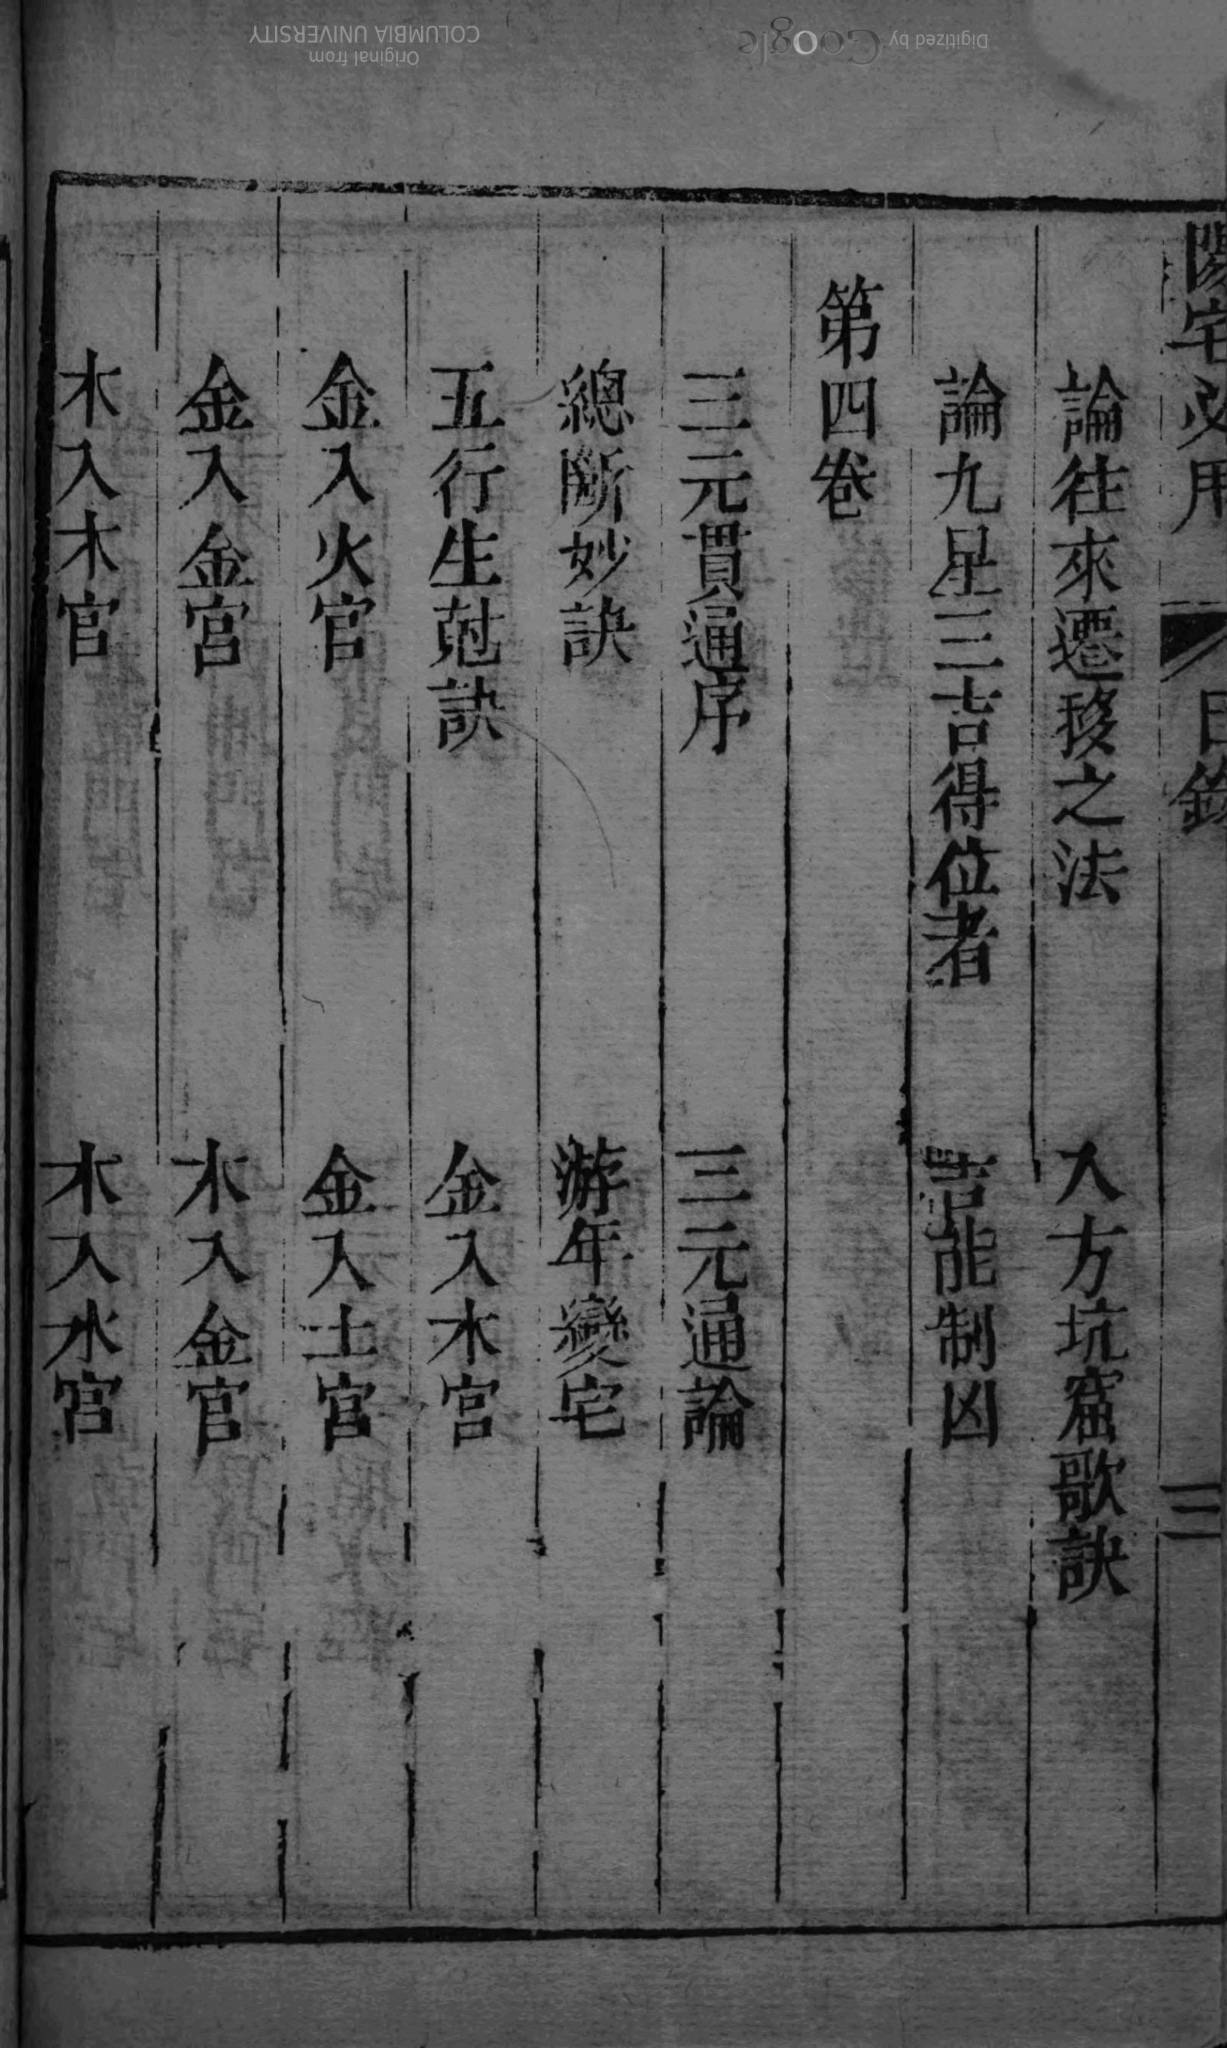 陽宅必用 目錄 三
論往來遷移之法 入方坑窟歌訣
論九星三吉得位者 吉能制凶
第四卷
三元貫通序 三元通論
總斷妙訣 游年變宅
五行生尅訣 金入木宮
金入火宮 金入土宮
金入金宮 木入金宮
木入木宮 木入水宮
Digitized by Google
Original from
COLUMBIA UNIVERSITY